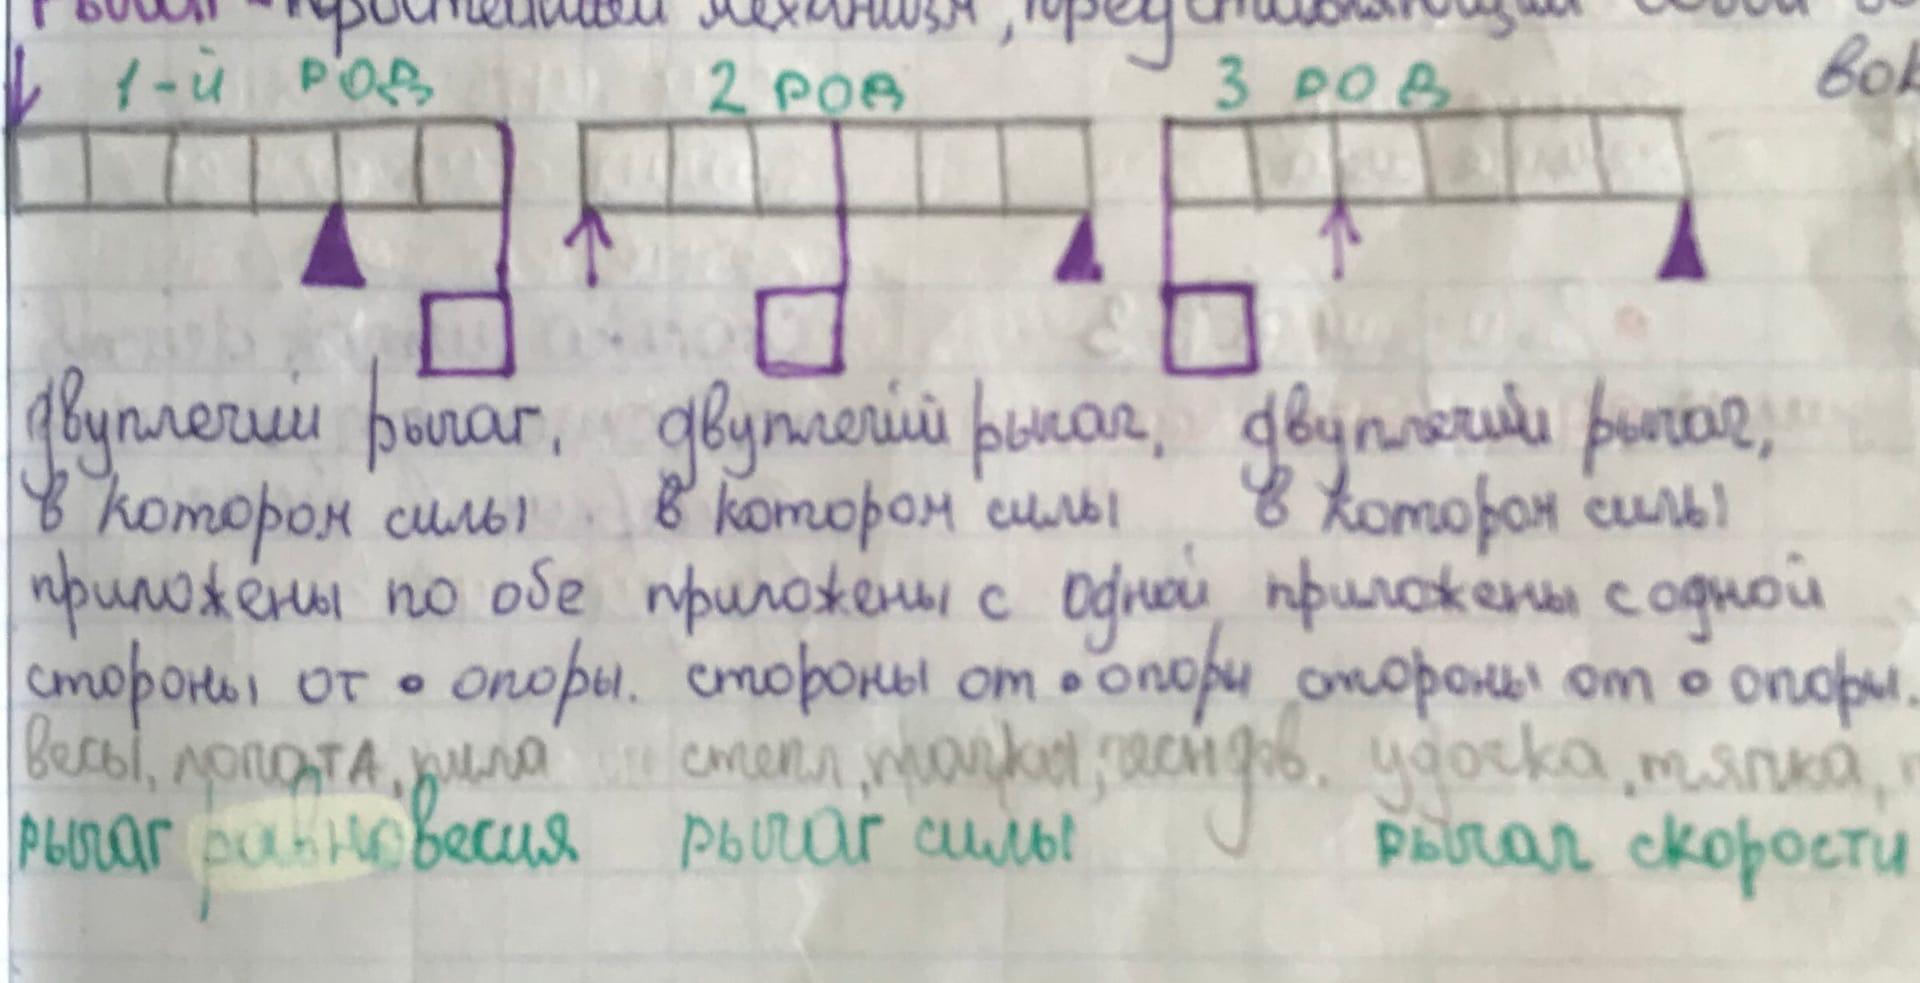 Рычаг - простейший механизм, представляющий собой
вок
1-й род 2 род 3 род
двуплечий рычаг, двуплечий рычаг, двуплечий рычаг,
в котором силы в котором силы в котором силы
приложены по обе приложены с одной приложены с одной
стороны от • опоры. стороны от • опоры стороны от • опоры.
весы, лопата, пила степл, тачка, удочка, тяпка,
рычаг равновесия рычаг силы рычаг скорости